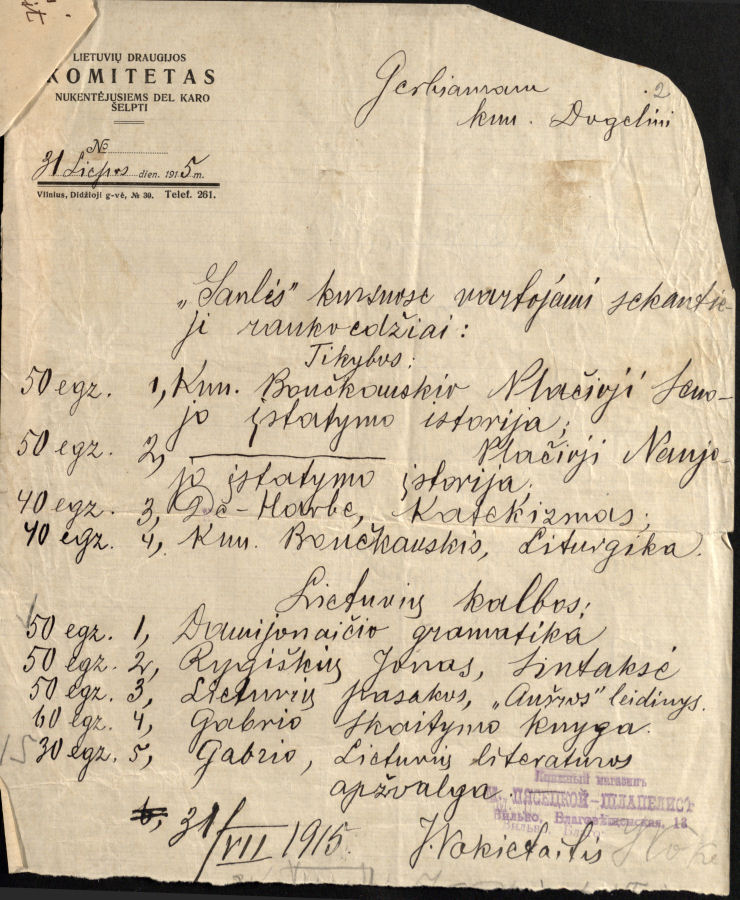 LIETUVIŲ DRAUGIJOS
KOMITETAS
NUKENTĖJUSIEMS DEL KARO
ŠELPTI
№
31 Liepos dien. 1915 m.
Vilnius, Didžioji g-vė, № 30. Telef. 261.
2
Gerbiamam
kun. Dogelini
„Saulės" kursuose vartojami sekantie-
ji rankvedžiai:
Tikybos:
50 egz. 1, Kun. Bončkauskio Plačioji Seno-
jo įstatymo istorija;
50 egz. 2, ———— Plačioji Naujo-
jo įstatymo įstorija,
40 egz. 3, De-Harbe, Katekizmas;
40 egz. 4, Kun. Bončkauskis, Liturgika.
Lietuvių kalbos:
50 egz. 1, Damijonaičio gramatika
50 egz. 2, Rygiškių Jonas, Sintaksė
50 egz. 3, Lietuvių pasakos, „Aušros" leidinys.
60 egz. 4, Gabrio Skaitymo knyga.
30 egz. 5, Gabrio, Lietuvių literaturos
apžvalga.
Книжный магазинъ
ПЯСЕЦКОЙ-ШЛАПЕЛИСЪ
Вильно, Благовѣщенская, 13
31/VII 1915.
J. Vokietaitis